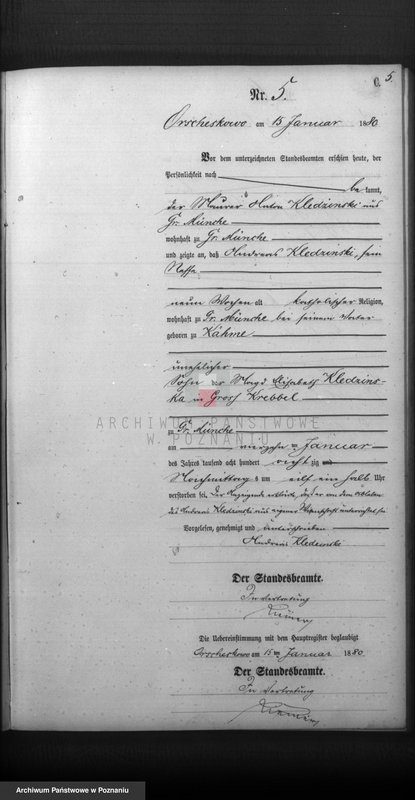 5.
C.
Nr. 5.
Orscheskowo am 15 Januar 1880
Vor dem unterzeichneten Standesbeamten erschien heute, der
Persönlichkeit nach
be kannt,
der Maurer Kledzinski aus
Gr. Münche
wohnhaft zu Gr. Münche
und zeigte an, daß Andreas Kledzinski, sein
Neffe
neun Wochen alt katholischer Religion,
wohnhaft zu Gr. Münche bei seinem
geboren zu Kähme
unehelicher
Sohn der Magd Elisabeth Kledzins-
ka in Grosz Krebbel
zu Gr. Münche
am vierzehn ten Januar
des Jahres tausend acht hundert acht zig
Nachmittag s um elf ein halb Uhr
verstorben sei. Der Anzeigende erklärte, daß er von dem Ableben
des Andreas Kledzinski aus eigener Wissenschaft unterrichtet sei
Vorgelesen, genehmigt und unterschrieben
Kledzinski
Der Standesbeamte.
In Vertretung
Die Uebereinstimmung mit dem Hauptregister beglaubigt
Orscheskowo am 15 ten Januar 1880
Der Standesbeamte.
In Vertretung
ARCHIWUM PAŃSTWOWE
W POZNANIU
Archiwum Państwowe w Poznaniu